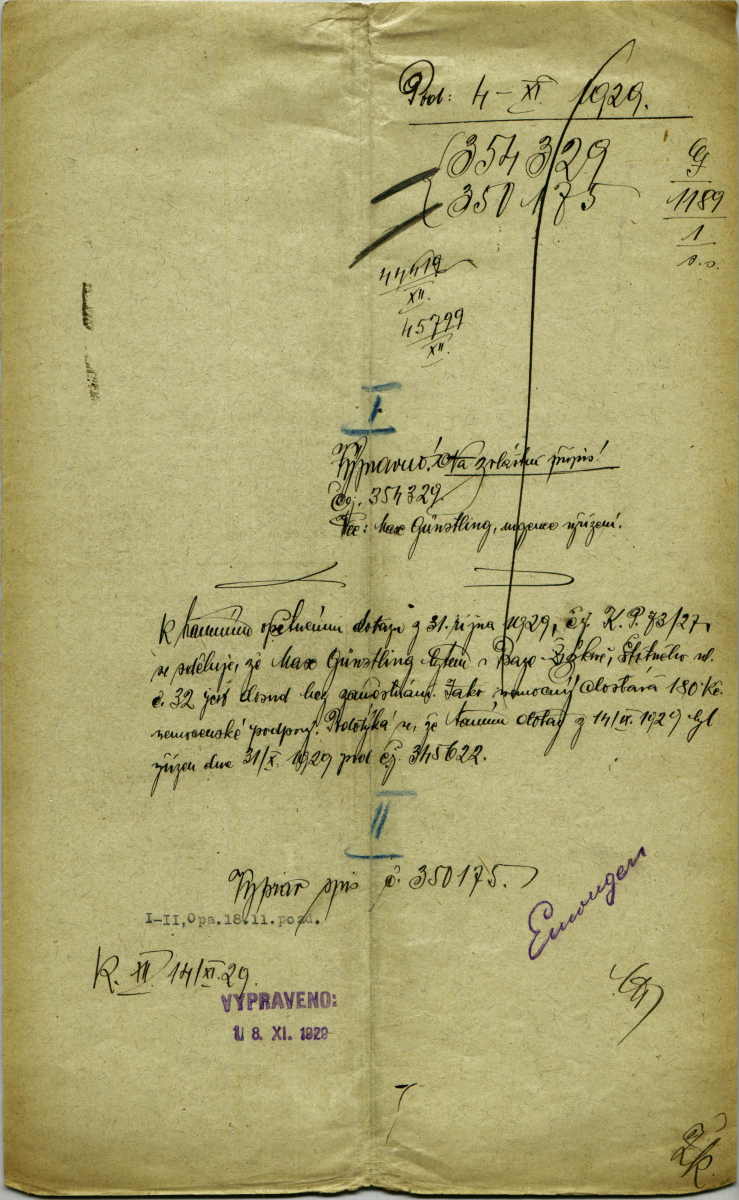 Pod: 4 – XI. 1929.
354 329
350 175
G
1189
1
s. s.
44419
XII.
45799
XII.
I.
Výpravně! Na zvláštní přípis!
Čj. 354329
Věc: Max Günstling, urgence vyřízení.
K tamnímu opětnému dotazu z 31. října 1929, čj. K. P. 73/27,
se sděluje, že Max Günstling bytem v Praze Žižkově, Štítného ul.
č. 32 jest dosud bez zaměstnání. Jako nemocný dostává 180 Kč
nemocenské podpory. Podotýká se, že tamní dotaz z 14/IX. 1929 byl
vyřízen dne 31/X. 1929 pod čj. 345622.
II
Vypiar spis č. 350175.
I-II, Opa. 18.11. pozd.
K. XII. 14/XI. 29.
VYPRAVENO:
18. XI. 1929